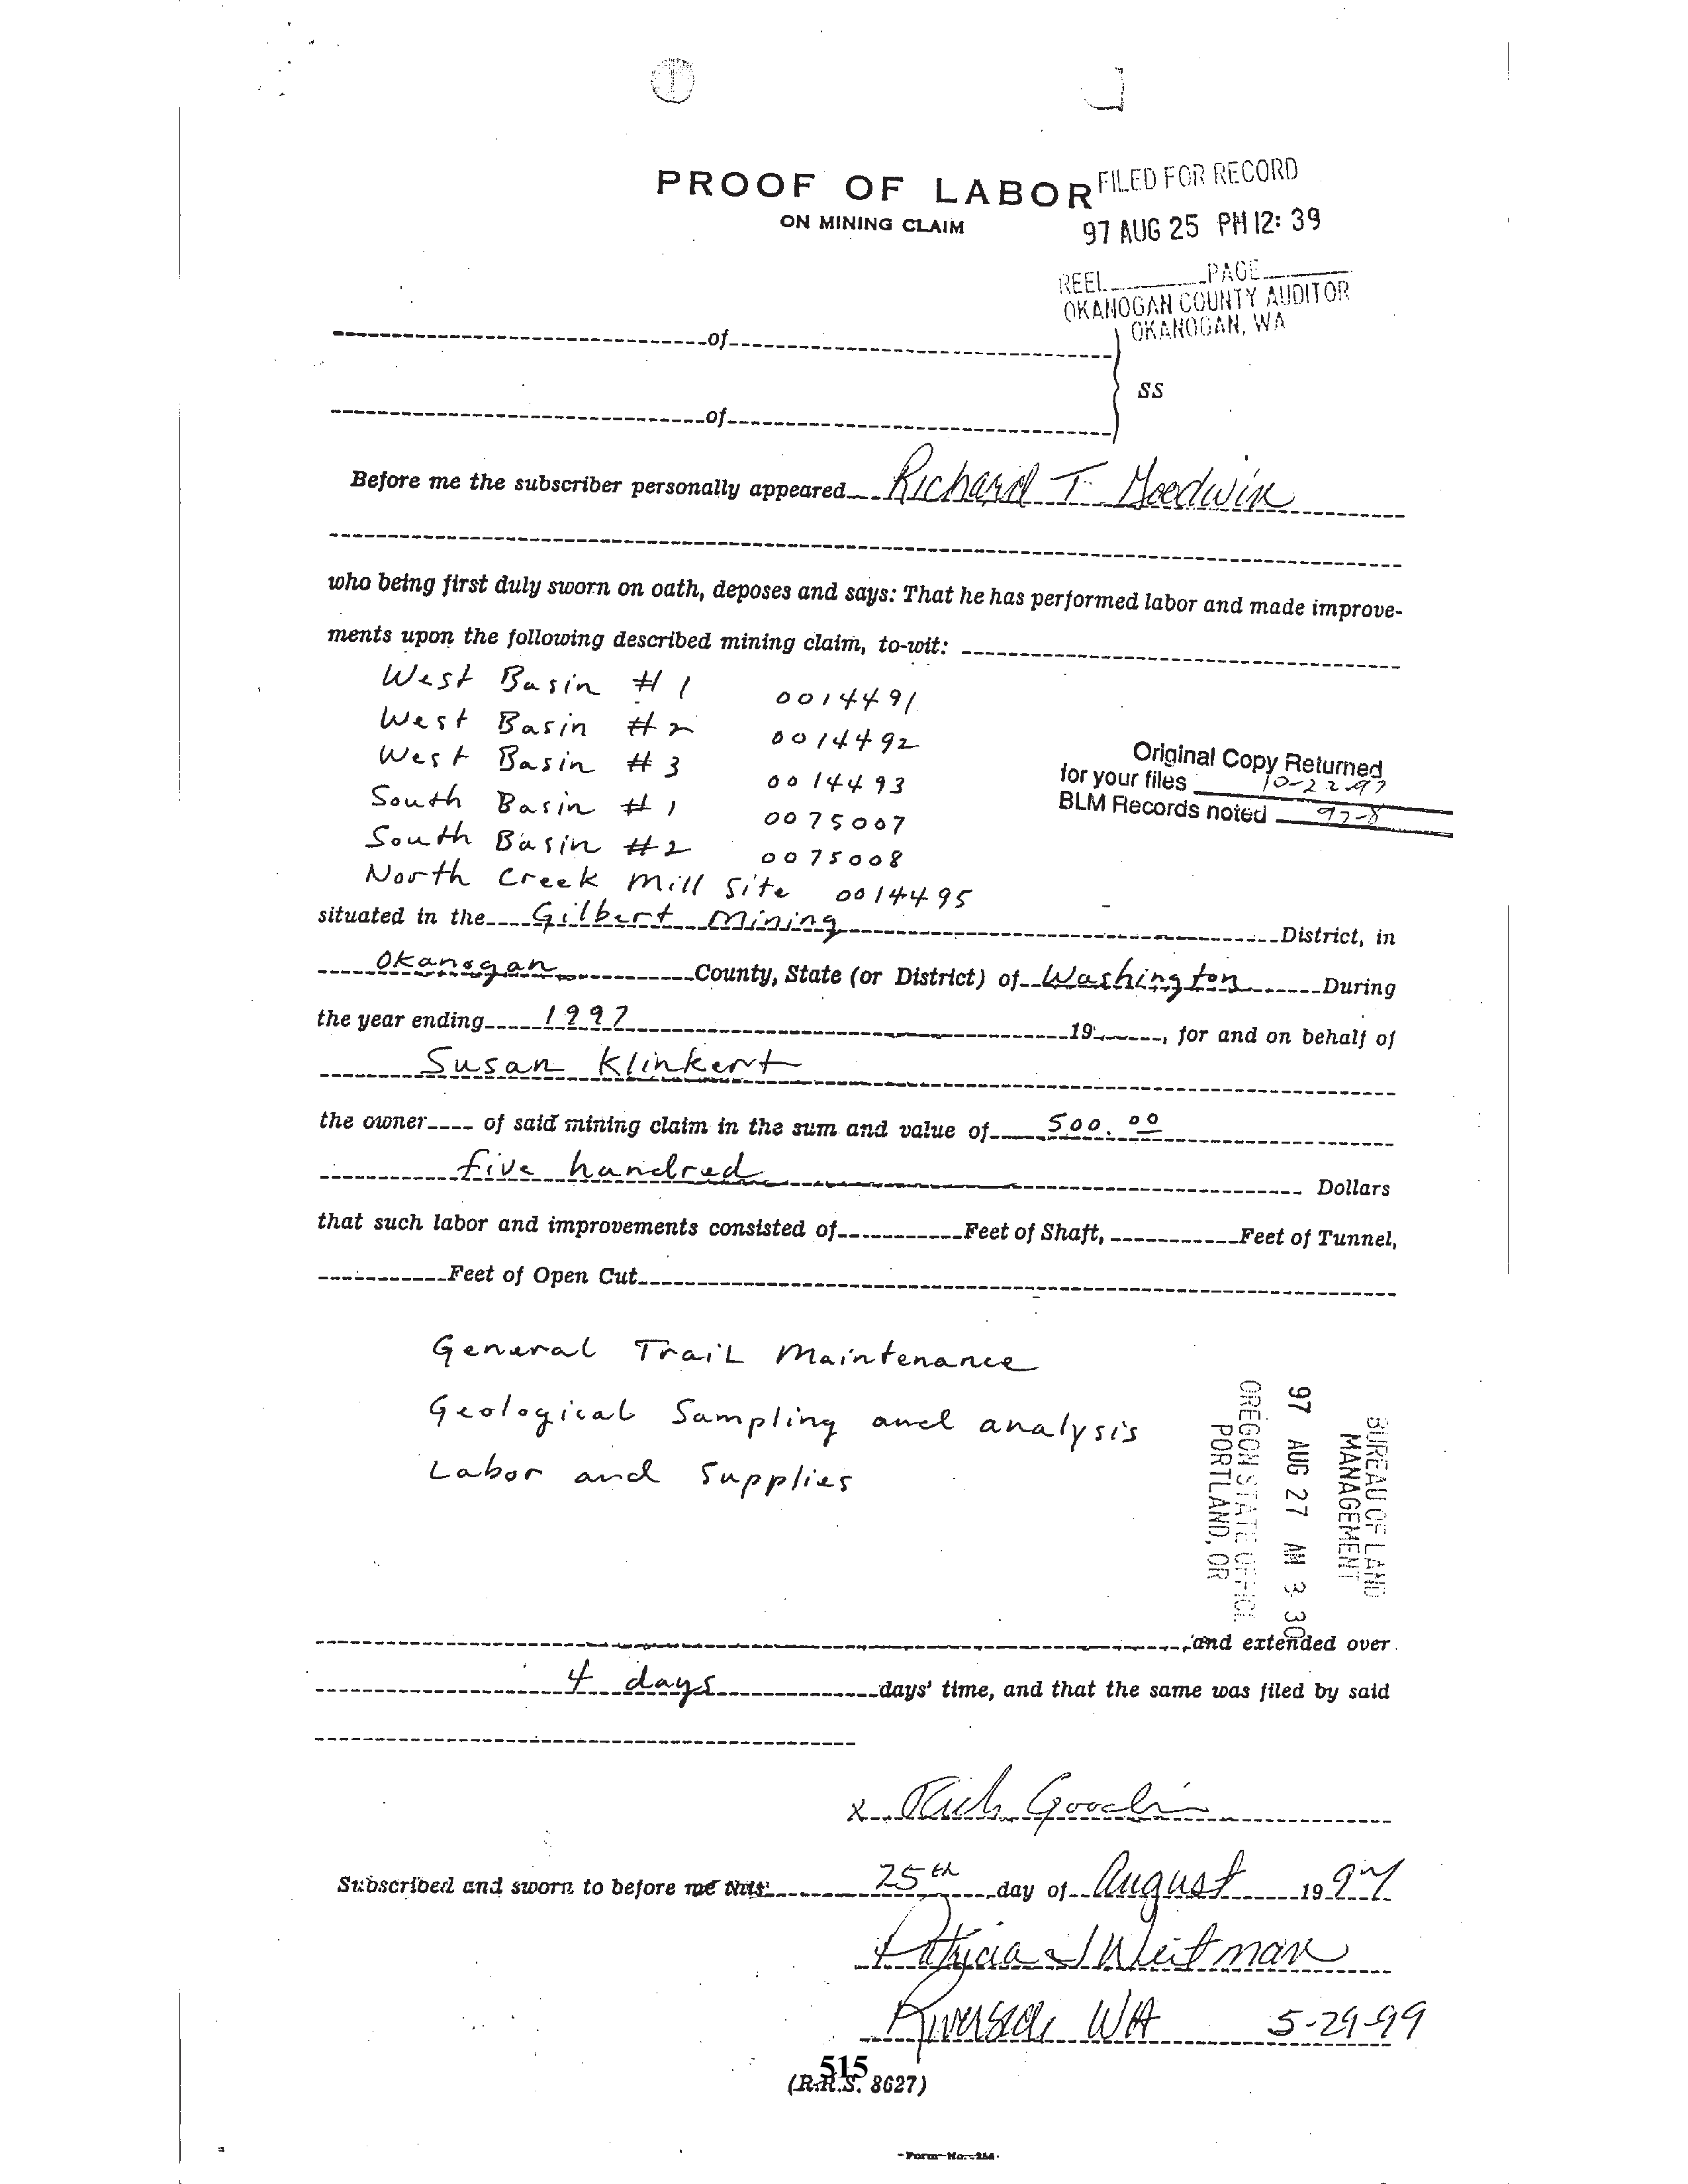 PROOF OF LABOR
ON MINING CLAIM
FILED FOR RECORD
97 AUG 25 PM 12: 39
REEL PAGE
OKANOGAN COUNTY AUDITOR
OKANOGAN, WA
of
SS
of
Before me the subscriber personally appeared Richard T. Goodwin
who being first duly sworn on oath, deposes and says: That he has performed labor and made improve-
ments upon the following described mining claim, to-wit:
West Basin #1 0014491
West Basin #2 0014492
West Basin #3 0014493
South Basin #1 0075007
South Basin #2 0075008
North Creek Mill Site 0014495
Original Copy Returned
for your files 10-22-97
BLM Records noted 97-8
situated in the Gilbert Mining District, in
Okanogan County, State (or District) of Washington During
the year ending 1997 19 , for and on behalf of
Susan Klinkert
the owner of said mining claim in the sum and value of 500.00
five hundred Dollars
that such labor and improvements consisted of Feet of Shaft, Feet of Tunnel,
Feet of Open Cut
General Trail Maintenance
Geological Sampling and analysis
Labor and Supplies
BUREAU OF LAND
MANAGEMENT
97 AUG 27 AM 3 30
OREGON STATE OFFICE
PORTLAND, OR
, and extended over
4 days days' time, and that the same was filed by said
x Rich Goodwin
Subscribed and sworn to before me this 25th day of August 1997
Patricia J Weitman
Riverside WA 5-29-99
515
(R.R.S. 8627)